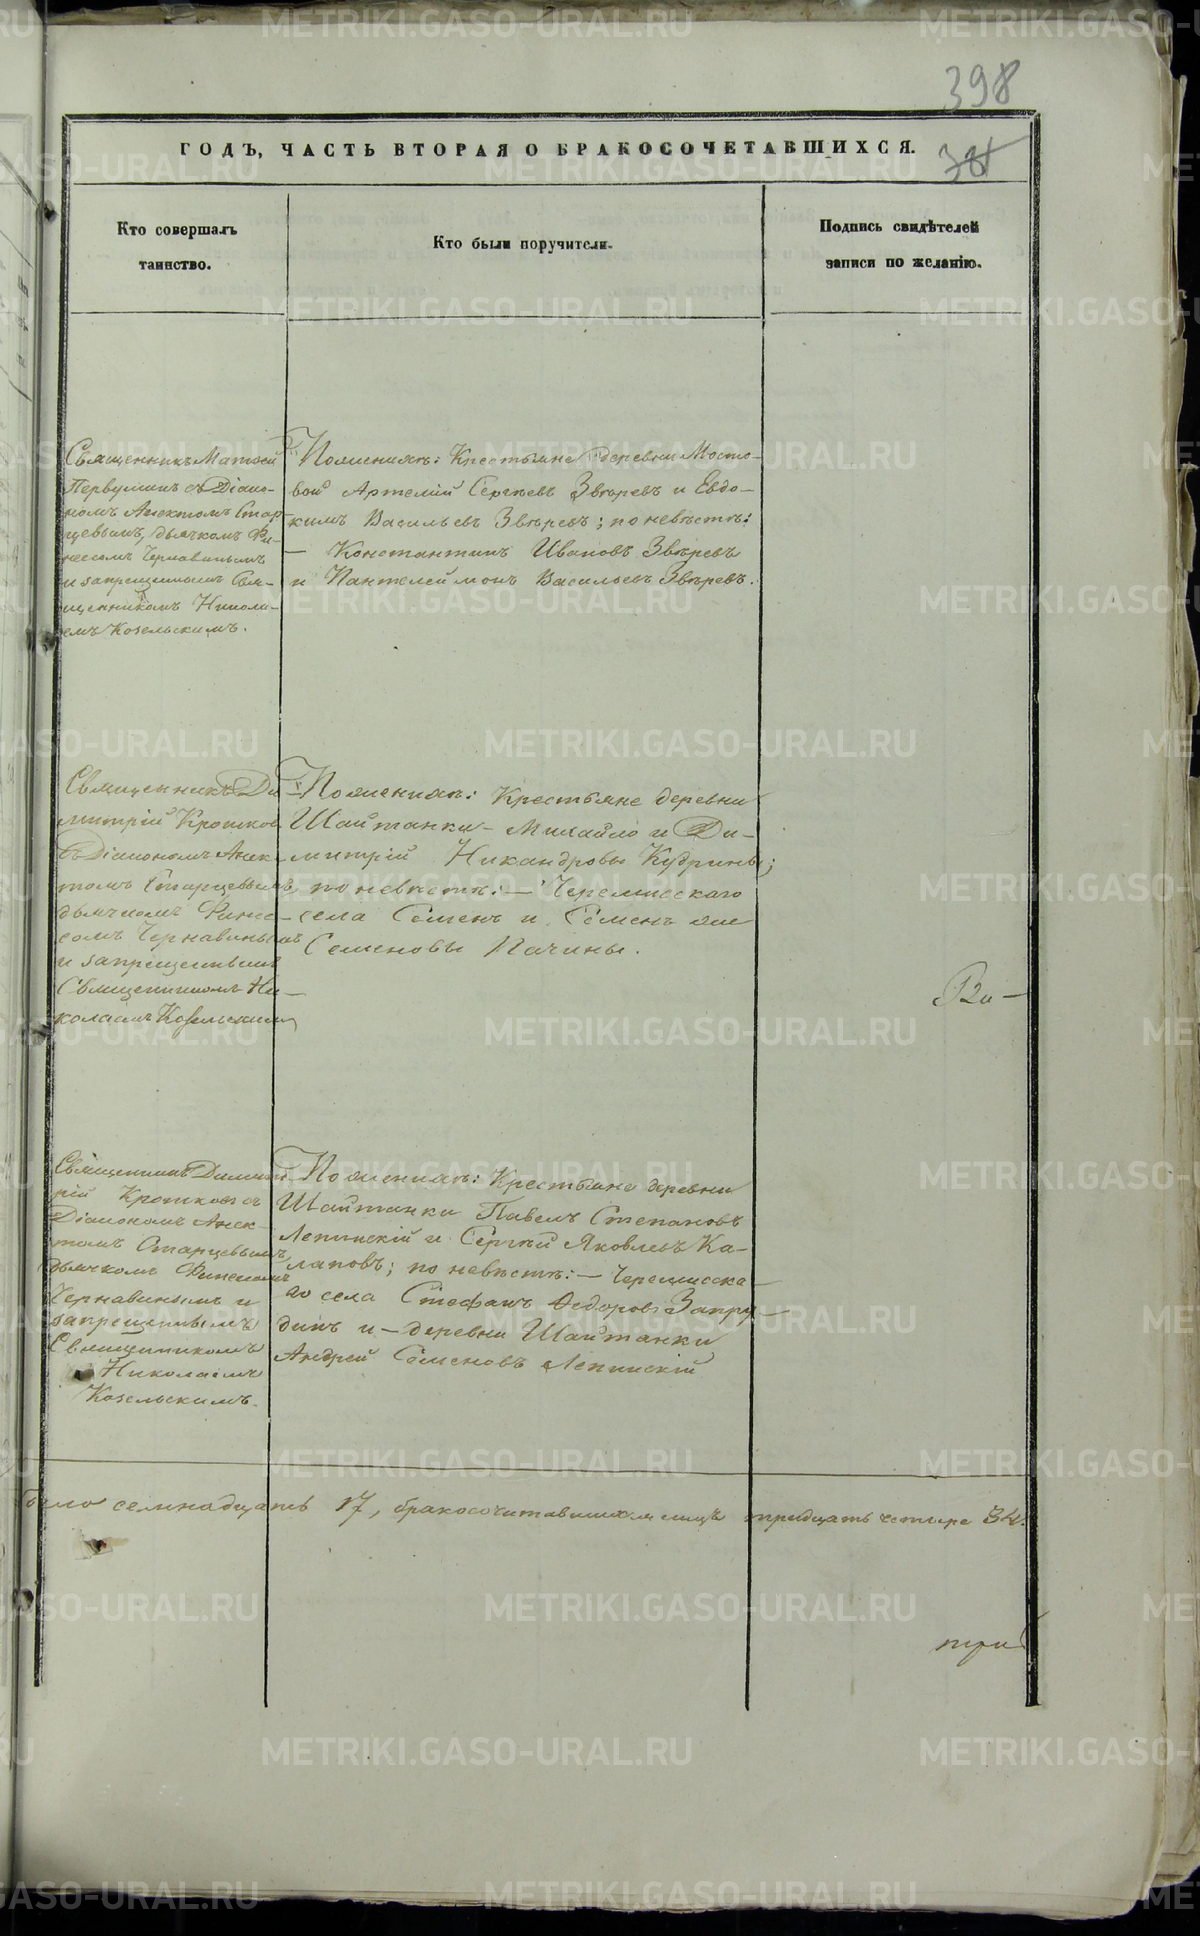 398
ГОДЪ, ЧАСТЬ ВТОРАЯ О БРАКОСОЧЕТАВШИХСЯ.
Кто совершалъ
таинство.
Кто были поручители.
Подпись свидѣтелей
записи по желанію.
Священникъ Матвей
Первушинъ съ Діако-
номъ Анектомъ Стар-
цевымъ, дьячкомъ Фи-
несомъ Чернавинымъ
и запрещеннымъ Свя-
щенникомъ Никола-
емъ Козельскимъ.
По женихѣ: Крестьяне деревни Мосто-
вой Артемій Сергѣевъ Звѣревъ и Евдо-
кимъ Васильевъ Звѣревъ; по невѣстѣ:
— Константинъ Ивановъ Звѣревъ
и Пантелеймонъ Васильевъ Звѣревъ.
Священникъ Ди
митрій Кротковъ
съ Діакономъ Анек-
томъ Старцевымъ
дьячкомъ Фине-
сомъ Чернавинымъ
и запрещеннымъ
Священникомъ Ни-
колаемъ Козельскимъ
По женихѣ: Крестьяне деревни
Шайтанки — Михайло и Ди-
митрій Никандровы Кудрины;
по невѣстѣ: — Черемисскаго
села Семенъ и Семенъ же
Семеновы Пачины.
Священникъ Димит
рій Кротковъ съ
Діакономъ Анек-
томъ Старцевымъ,
дьячкомъ Финесомъ
Чернавинымъ и
запрещеннымъ
Священникомъ
Николаемъ
Козельскимъ.
По женихѣ: Крестьяне деревни
Шайтанки Павелъ Степановъ
Лепинскій и Сергѣй Яковлевъ Ка-
лаповъ; по невѣстѣ: — Черемисска-
го села Стефанъ Федоровъ Запру-
динъ и — деревни Шайтанки
Андрей Семеновъ Лепинскій
было семнадцать 17, бракосочитавшихся лицъ тридцать четыре 34.
три
METRIKI.GASO-URAL.RU